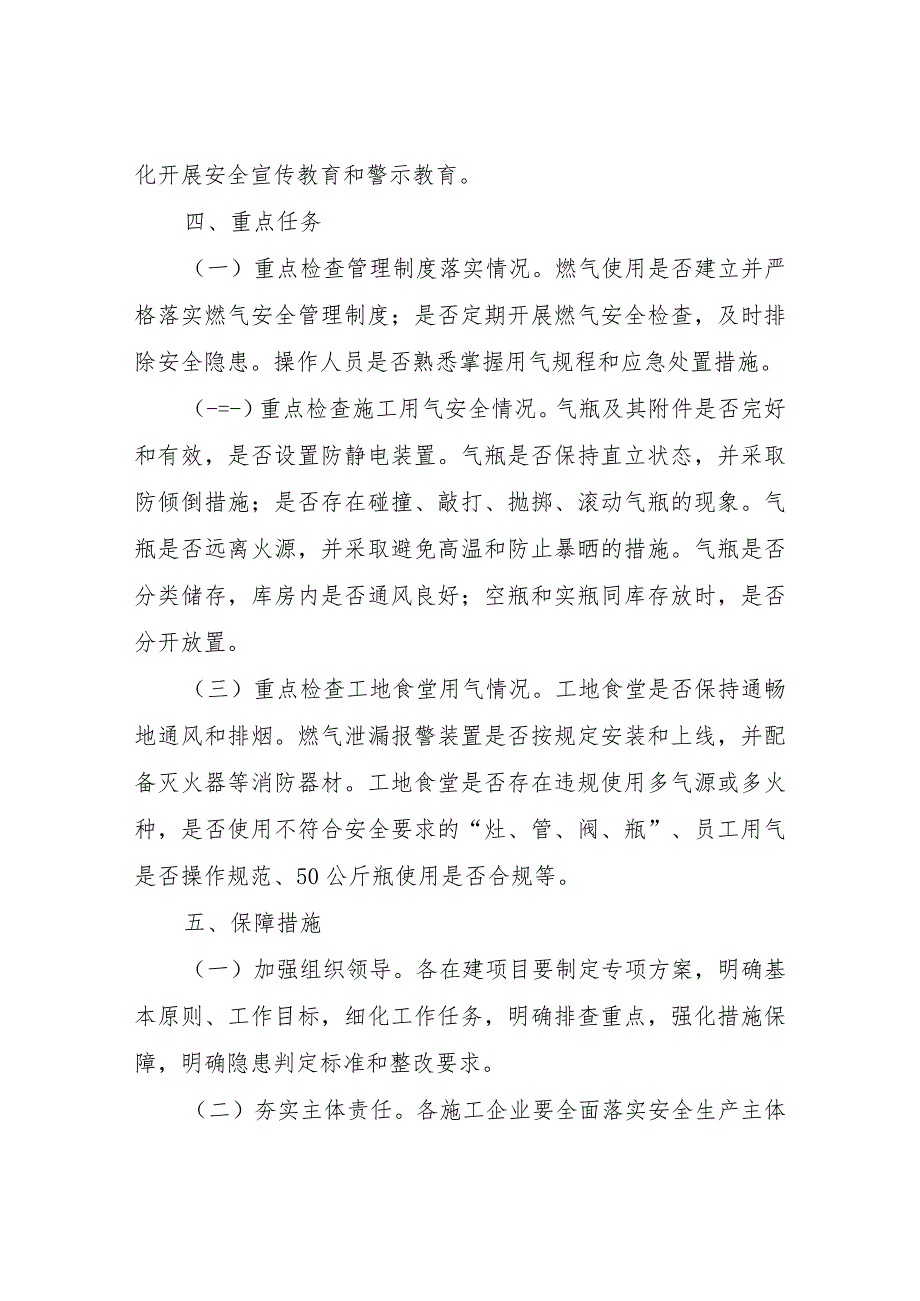 化开展安全宣传教育和警示教育。
四、重点任务
（一）重点检查管理制度落实情况。燃气使用是否建立并严
格落实燃气安全管理制度；是否定期开展燃气安全检查，及时排
除安全隐患。操作人员是否熟悉掌握用气规程和应急处置措施。
（-=-）重点检查施工用气安全情况。气瓶及其附件是否完好
和有效，是否设置防静电装置。气瓶是否保持直立状态，并采取
防倾倒措施；是否存在碰撞、敲打、抛掷、滚动气瓶的现象。气
瓶是否远离火源，并采取避免高温和防止暴晒的措施。气瓶是否
分类储存，库房内是否通风良好；空瓶和实瓶同库存放时，是否
分开放置。
（三）重点检查工地食堂用气情况。工地食堂是否保持通畅
地通风和排烟。燃气泄漏报警装置是否按规定安装和上线，并配
备灭火器等消防器材。工地食堂是否存在违规使用多气源或多火
种，是否使用不符合安全要求的“灶、管、阀、瓶”、员工用气
是否操作规范、50 公斤瓶使用是否合规等。
五、保障措施
（一）加强组织领导。各在建项目要制定专项方案，明确基
本原则、工作目标，细化工作任务，明确排查重点，强化措施保
障，明确隐患判定标准和整改要求。
（二）夯实主体责任。各施工企业要全面落实安全生产主体